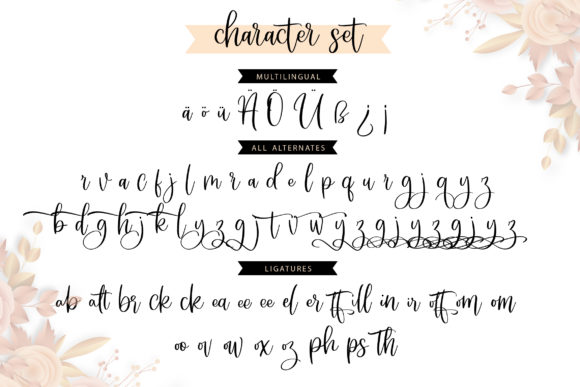 character set
MULTILINGUAL
ä ö ü Ä Ö Ü ß ¿ ¡
ALL ALTERNATES
r v a c f j l m r a d e l p q u r g j q y z
b d g h j k l y z g j t v w y z g j y z g j y z
LIGATURES
ab att br ck ck ea ee ee el er ff ill in ir off om om
oo ov ow ox oz ph ps th